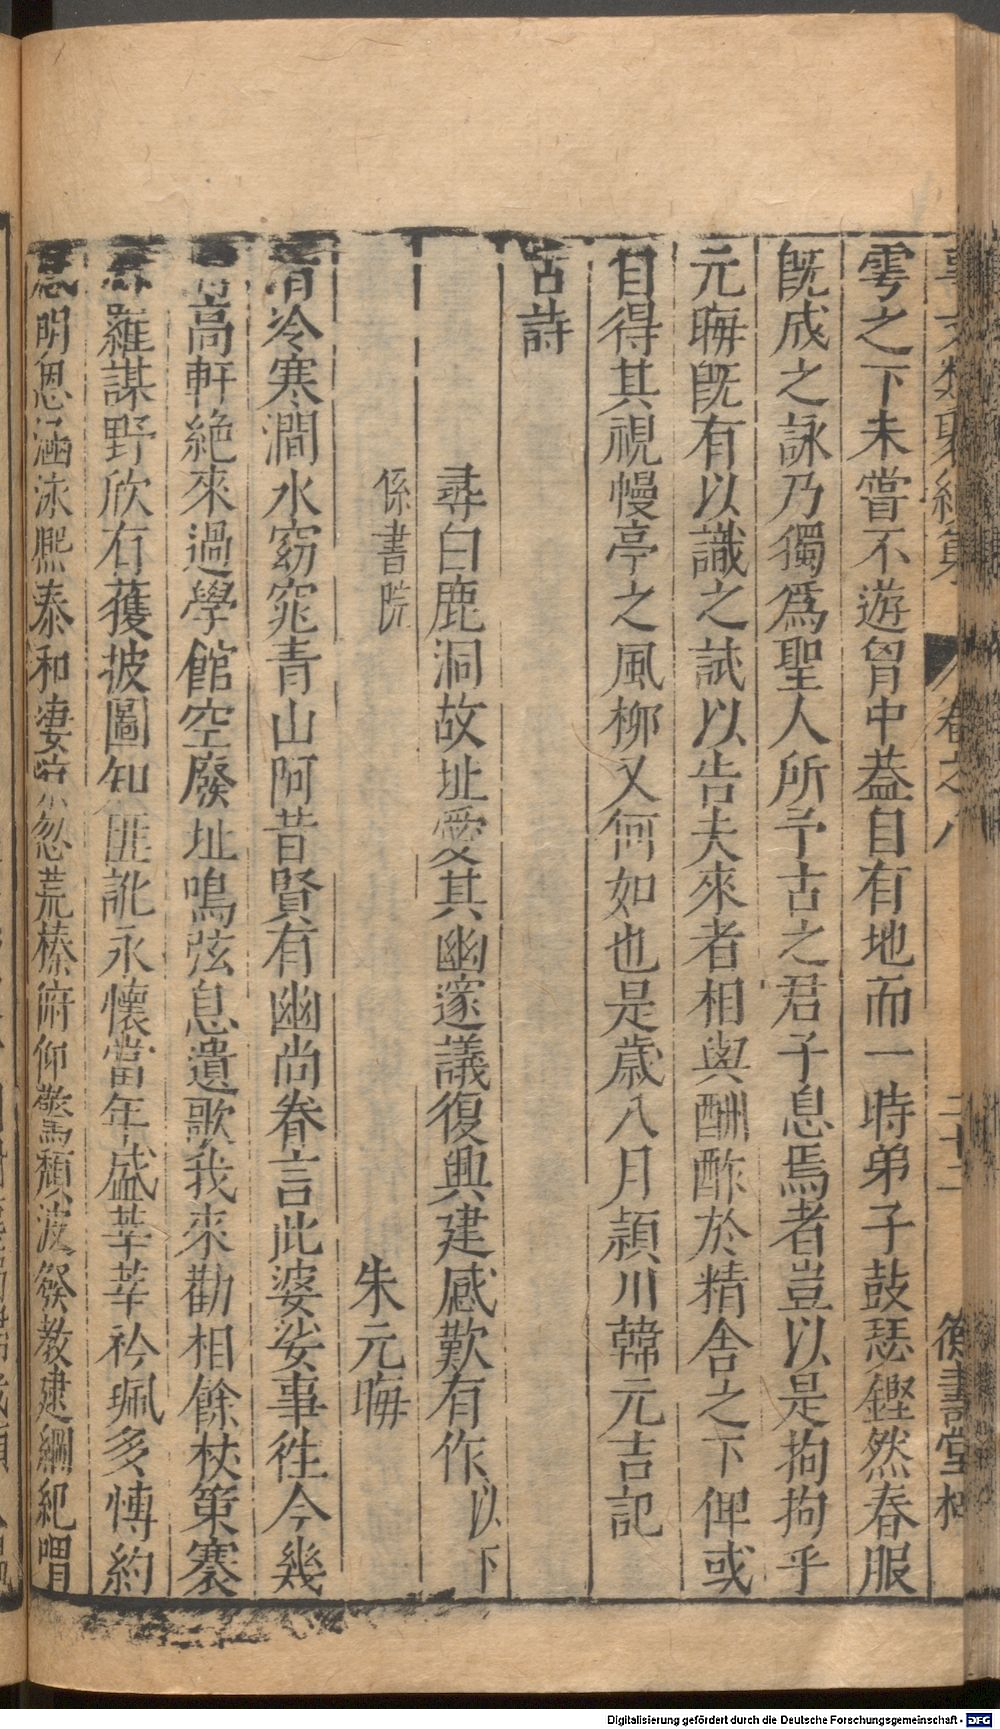 雩之下未嘗不遊胷中葢自有地而一時弟子鼓瑟鏗然春服
旣成之詠乃獨爲聖人所予古之君子息焉者豈以是拘拘乎
元晦旣有以識之試以告夫來者相與酬酢於精舍之下俾或
自得其視幔亭之風栁又何如也是歲八月潁川韓元吉記
古詩
尋白鹿洞故址愛其幽邃議復興建感歎有作以下
係書院
朱元晦
清冷寒澗水窈窕青山阿昔賢有幽尚眷言此婆娑事徃今幾
高軒絶來過學館空廢址鳴弦息遺歌我來勸相餘杖策褰
羅謀野欣有獲披圖知匪訛永懷當年盛莘莘衿珮多慱約
明恩涵泳熈泰和淒凉忽荒榛俯仰驚頹波發教建綱紀喟
卷之八
Digitalisierung gefördert durch die Deutsche Forschungsgemeinschaft - DFG